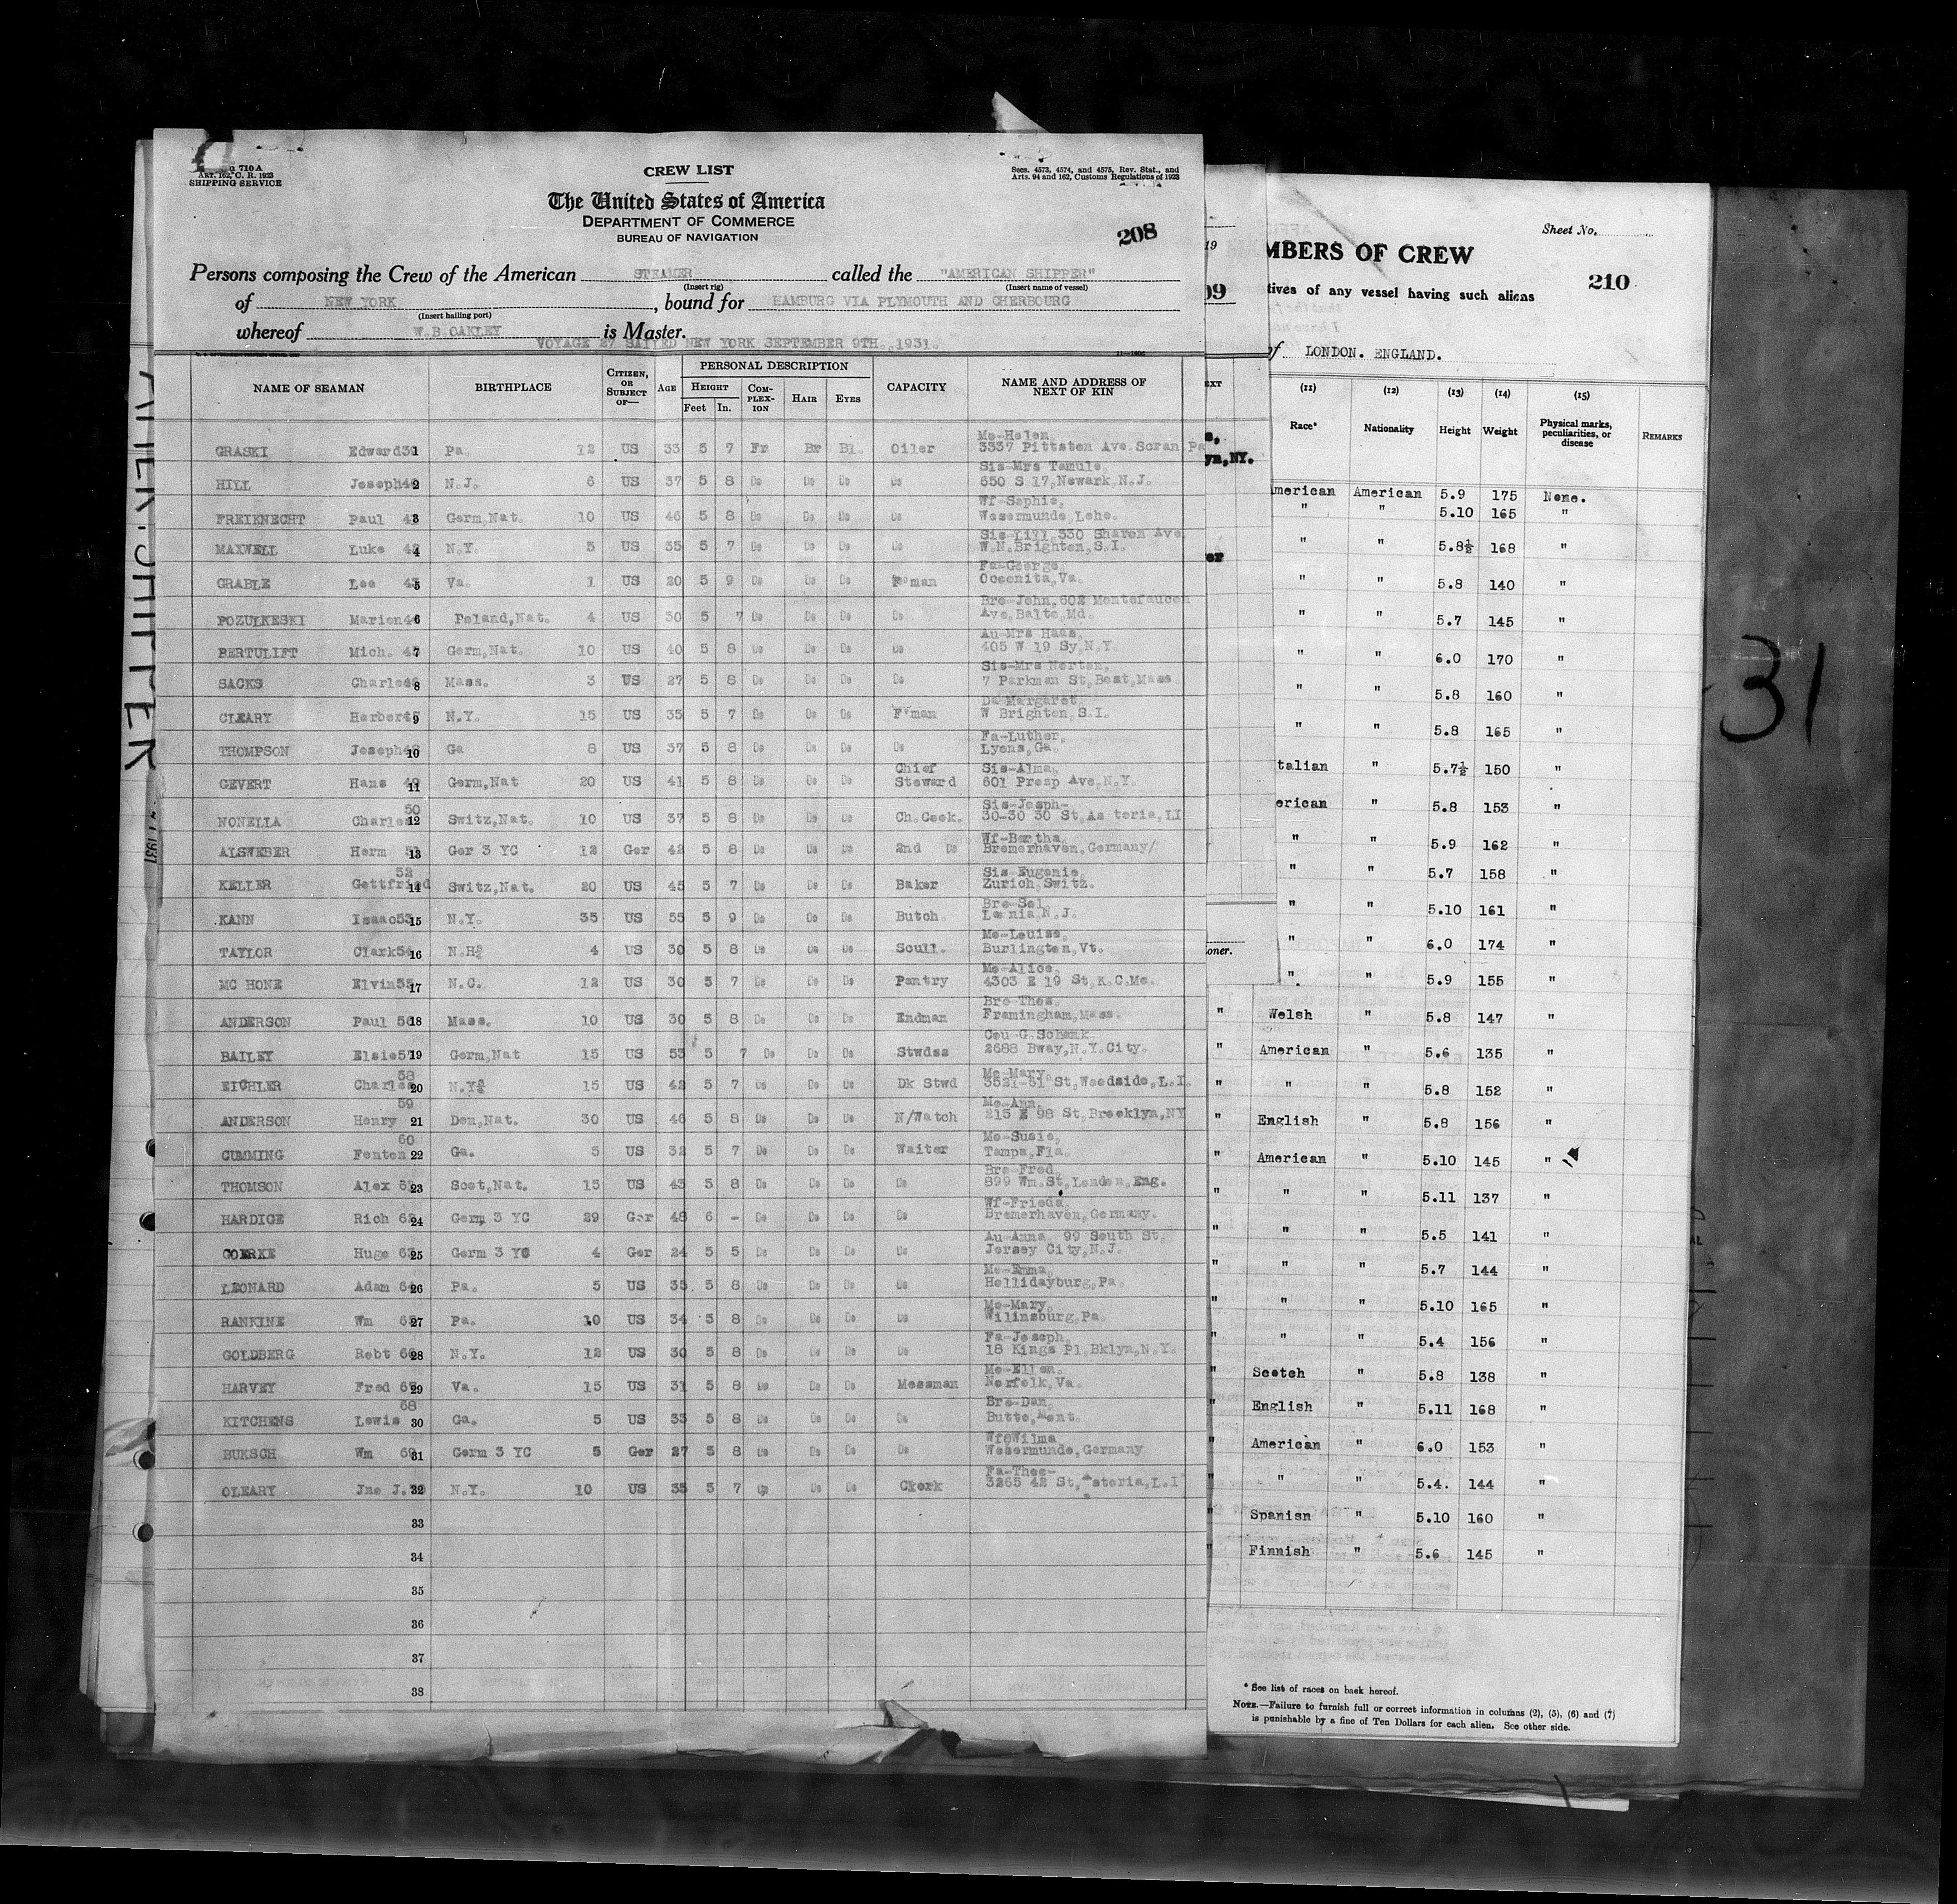 710 A
ART. 162, C. R. 1923
SHIPPING SERVICE
CREW LIST
Secs. 4573, 4574, and 4575, Rev. Stat., and
Arts. 94 and 162, Customs Regulations of 1923
The United States of America
DEPARTMENT OF COMMERCE
BUREAU OF NAVIGATION
208
Persons composing the Crew of the American STEAMER called the "AMERICAN SHIPPER"
(Insert rig) (Insert name of vessel)
of NEW YORK, bound for HAMBURG VIA PLYMOUTH AND CHERBOURG
(Insert hailing port)
whereof W.B.OAKLEY is Master.
VOYAGE 27 SAILED NEW YORK SEPTEMBER 9TH.,1931.
NAME OF SEAMAN BIRTHPLACE CITIZEN, OR SUBJECT OF— AGE PERSONAL DESCRIPTION CAPACITY NAME AND ADDRESS OF NEXT OF KIN
HEIGHT COMPLEXION HAIR EYES
Feet In.
Mo-Helen,
GRASKI Edward 1 Pa. 12 US 33 5 7 Fr Br Bl. Oiler 3337 Pittston Ave.Scran.Pa
Sis-Mrs Tamule,
HILL Joseph 2 N.J. 6 US 37 5 8 Do Do Do Do 650 S 17,Newark,N.J.
Wf-Sophie,
FREIKNECHT Paul 3 Germ,Nat. 10 US 46 5 8 Do Do Do Do Wesermunde,Lehe.
Sis-Lill,330 Sharon Ave,
MAXWELL Luke 4 N.Y. 5 US 35 5 7 Do Do Do Do W.N.Brighton,S.I.
Fa-George,
GRABLE Lee 5 Va. 1 US 20 5 9 Do Do Do F'man Oceonita,Va.
Bro-John,602 Montefaucon
POZULKESKI Marion 6 Poland,Nat. 4 US 30 5 7 Do Do Do Do Ave,Balto,Md.
Au-Mrs Haas,
BERTULIFT Mich. 7 Germ,Nat. 10 US 40 5 8 Do Do Do Do 405 W 19 Sy,N.Y.
Sis-Mrs Norton,
SACKS Charles 8 Mass. 3 US 27 5 8 Do Do Do Do 7 Parkman St,Bost,Mass.
Da-Margaret,
CLEARY Herbert 9 N.Y. 15 US 35 5 7 Do Do Do F'man W Brighton,S.I.
Fa-Luther,
THOMPSON Joseph 10 Ga 8 US 37 5 8 Do Do Do Do Lyons,Ga.
Chief Sis-Alma,
GEVERT Hans 49 11 Germ,Nat 20 US 41 5 8 Do Do Do Steward 601 Prosp Ave,N.Y.
50 Sis-Josph-
NONELLA Charles 12 Switz,Nat. 10 US 37 5 8 Do Do Do Ch.Cook. 30-30 30 St,As teria,LI
Wf-Bertha,
ALSWEBER Herm 13 Ger 3 YC 12 Ger 42 5 8 Do Do Do 2nd Do Bremerhaven,Germany/
52 Sis-Eugenie,
KELLER Gottfried 14 Switz,Nat. 20 US 45 5 7 Do Do Do Baker Zurich,Switz.
Bro-Sol,
KANN Isaac53 15 N.Y. 35 US 55 5 9 Do Do Do Butch. Leonia,N.J.
Mo-Louise,
TAYLOR Clark54 16 N.H. 4 US 30 5 8 Do Do Do Scull. Burlington,Vt.
Mo-Alice,
MC HONE Elvin55 17 N.C. 12 US 30 5 7 Do Do Do Pantry 4303 E 19 St,K.C.Mo.
Bro-Thos.
ANDERSON Paul 56 18 Mass. 10 US 30 5 8 Do Do Do Endman Framingham,Mass.
Cou-G.Schenk,
BAILEY Elsie57 19 Germ,Nat 15 US 53 5 7 Do Do Do Stwdss 2688 Bway,N.Y.City.
58 Mo-Mary,
EICHLER Charles 20 N.Y. 15 US 42 5 7 Do Do Do Dk Stwd 3521-61 St,Woodside,L.I.
59 Mo-Ann,
ANDERSON Henry 21 Den,Nat. 30 US 46 5 8 Do Do Do N/Watch 215 E 98 St,Brooklyn,NY
60 Mo-Susie,
CUMMING Fenton 22 Ga. 5 US 32 5 7 Do Do Do Waiter Tampa,Fla.
Bro-Fred,
THOMSON Alex 23 Scot,Nat. 15 US 43 5 8 Do Do Do Do 899 Wm.St,London,Eng.
Wf-Frieda,
HARDIGE Rich 24 Germ 3 YC 29 Ger 48 6 - Do Do Do Do Bremerhaven,Germany.
Au-Anna, 99 South St,
GOERKE Hugo 25 Germ 3 YC 4 Ger 24 5 5 Do Do Do Do Jersey City,N.J.
Mo-Emma,
LEONARD Adam 26 Pa. 5 US 35 5 8 Do Do Do Do Hollidayburg,Pa.
Mo-Mary,
RANKINE Wm 27 Pa. 10 US 34 5 8 Do Do Do Do Wilinsburg,Pa.
Fa-Joseph,
GOLDBERG Robt 28 N.Y. 12 US 30 5 8 Do Do Do Do 18 Kings Pl,Bklyn,N.Y.
Mo-Ellen,
HARVEY Fred 29 Va. 15 US 31 5 8 Do Do Do Messman Norfolk,Va.
68 Bro-Dan,
KITCHENS Lewis 30 Ga. 5 US 33 5 8 Do Do Do Do Butte,Mont.
Wf@Wilma
BUKSCH Wm 69 31 Germ 3 YC 5 Ger 27 5 8 Do Do Do Do Wesermunde,Germany
Fa-Theo-
OLEARY Jno J. 32 N.Y. 10 US 35 5 7 Do Do Do Clerk 3265 42 St,Asteria,L.I
33
34
35
36
37
38
19
09
EXT
yn,NY.
er
oner.
Sheet No.
MBERS OF CREW
210
tives of any vessel having such aliens
of LONDON. ENGLAND.
(11) (12) (13) (14) (15)
Race* Nationality Height Weight Physical marks, peculiarities, or disease REMARKS
merican American 5.9 175 None.
" " 5.10 165 "
" " 5.8½ 168 "
" " 5.8 140 "
" " 5.7 145 "
" " 6.0 170 "
" " 5.8 160 "
" " 5.8 165 "
talian " 5.7½ 150 "
erican " 5.8 153 "
" " 5.9 162 "
" " 5.7 158 "
" " 5.10 161 "
" " 6.0 174 "
" " 5.9 155 "
" Welsh " 5.8 147 "
" American " 5.6 135 "
" " " 5.8 152 "
" English " 5.8 156 "
" American " 5.10 145 "
" " " 5.11 137 "
" " " 5.5 141 "
" " " 5.7 144 "
" " " 5.10 165 "
" " " 5.4 156 "
" Scotch " 5.8 138 "
" English " 5.11 168 "
" American " 6.0 153 "
" " " 5.4. 144 "
" Spanish " 5.10 160 "
" Finnish " 5.6 145 "
* See list of races on back hereof.
NOTE.—Failure to furnish full or correct information in columns (2), (5), (6) and (7)
is punishable by a fine of Ten Dollars for each alien. See other side.
31